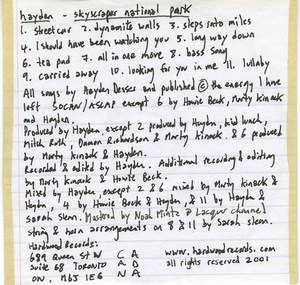 hayden - skyscraper national park
1. street car 2. dynamite walls 3. steps into miles
4. I should have been watching you 5. long way down
6. tea pad 7. all in one move 8. bass song
9. carried away 10. looking for you in me 11. lullaby
All songs by Hayden Desser and published © the energy I have
left SOCAN/ASCAP except 6 by Howie Beck, Marty Kinack
and Hayden.
Produced by Hayden, except 2 produced by Hayden, kid lunch,
Mitch Roth, Damon Richardson & Marty Kinack. & 6 produced
by Marty Kinack & Hayden.
Recorded & edited by Hayden. Additional recording & editing
by Marty Kinack & Howie Beck.
Mixed by Hayden, except 2 & 6 mixed by Marty Kinack &
Hayden, 4 by Howie Beck & Hayden, & 11 by Hayden &
Sarah Slean. Mastered by Noah Mintz @ Lacquer channel
String & horn arrangements on 8 & 11 by Sarah Slean.
Hardwood Records:
689 Queen St W C A www.hardwoodrecords.com
Suite 68 TORONTO A D all rights reserved 2001
ON, M6J 1E6 N A